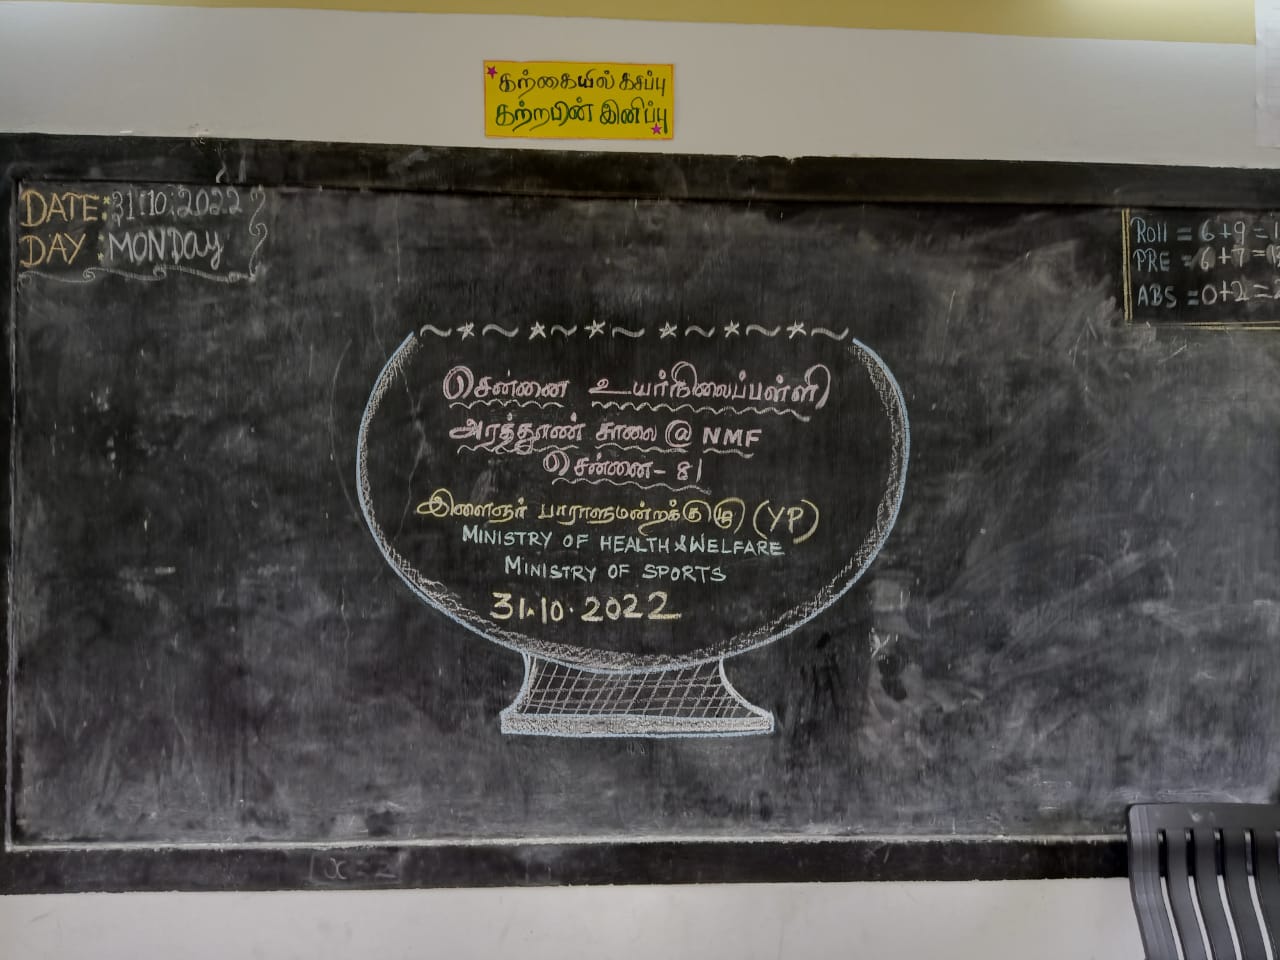 கற்கையில் கசப்பு
கற்றபின் இனிப்பு
DATE:31:10:2022
DAY :MONDAY
Roll = 6+9 =
PRE = 6+7 =
ABS = 0+2 =
சென்னை உயர்நிலைப்பள்ளி
அரத்தூண் சாலை @ NMF
சென்னை - 81
இளைஞர் பாராளுமன்றக்குழு (YP)
MINISTRY OF HEALTH & WELFARE
MINISTRY OF SPORTS
31.10.2022